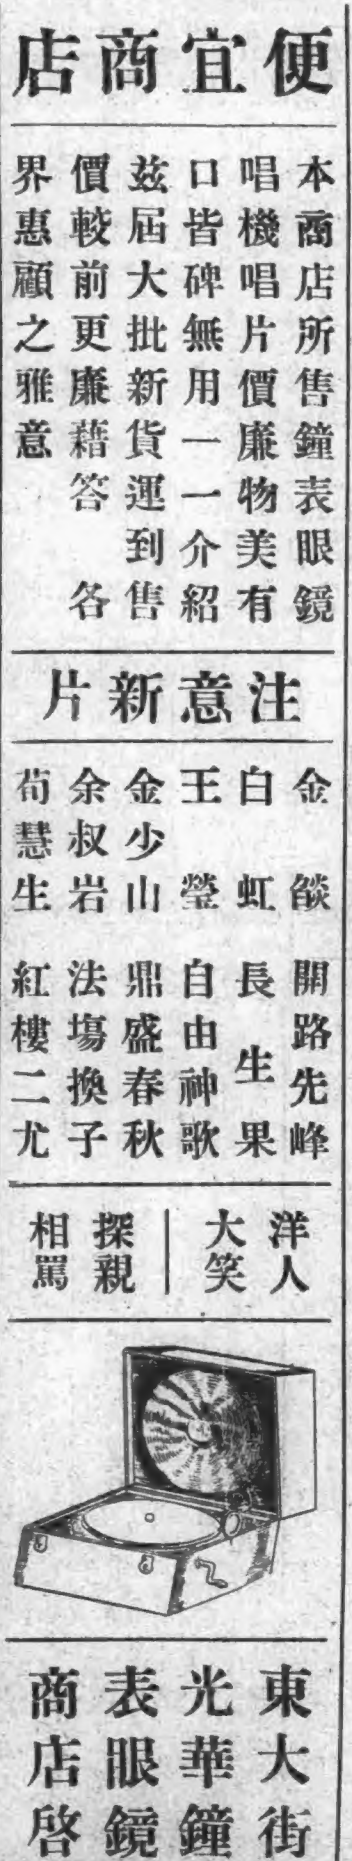 便宜商店
本商店所售鐘表眼鏡
唱機唱片價廉物美有
口皆碑無用一一介紹
茲屆大批新貨運到售
價較前更廉藉答　各
界惠顧之雅意
注意新片
金燄　開路先峰
白虹　長生果
王瑩　自由神歌
金少山　鼎盛春秋
余叔岩　法塲換子
荀慧生　紅樓二尤
洋人
大笑
探親
相罵
東大街
光華鐘
表眼鏡
商店啓